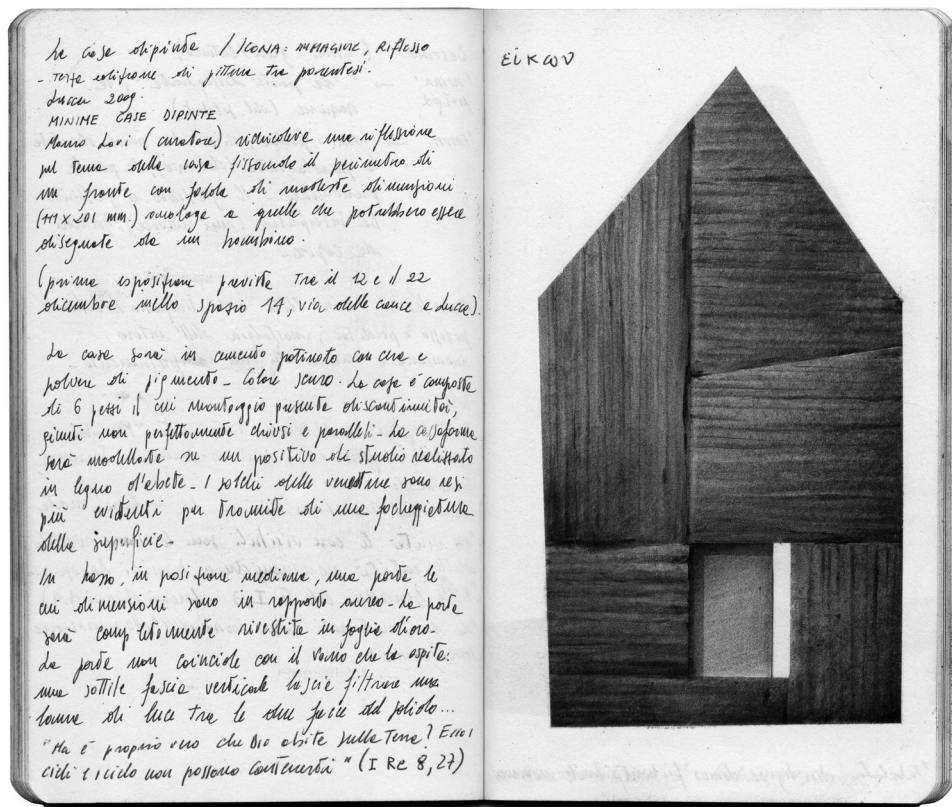 La casa dipinta / ICONA: IMMAGINE, RIFLESSO
- Terza edizione di pittura tra parentesi.
Lucca 2009.
MINIME CASE DIPINTE
Mauro Lovi (curatore) richiedeva una riflessione
sul tema della casa fissando il perimetro di
un fronte con falda di modeste dimensioni
(111 x 201 mm.) analoge a quelle che potrebbero essere
disegnate da un bambino.
(prima esposizione prevista tra il 12 e il 22
dicembre nello spazio 14, via delle conce a Lucca).
La casa sarà in cemento patinato con cera e
polvere di pigmento - Colore scuro. La casa è composta
di 6 pezzi il cui montaggio presenta discontinuità,
giunti non perfettamente chiusi e paralleli - La cassaforma
sarà modellata su un positivo di studio realizzato
in legno d'abete - I solchi delle venature sono resi
più evidenti per tramite di una
della superficie -
In basso, in posizione mediana, una porta le
cui dimensioni sono in rapporto aureo - La porta
sarà completamente rivestita in foglia d'oro -
La porta non coincide con il vano che la ospita:
una sottile fascia verticale lascia filtrare una
lama di luce tra le due facce del solido...
"Ma è proprio vero che Dio abita sulla Terra? Ecco i
cieli e i cieli non possono contenerti" (I Re 8, 27)
εἰκών